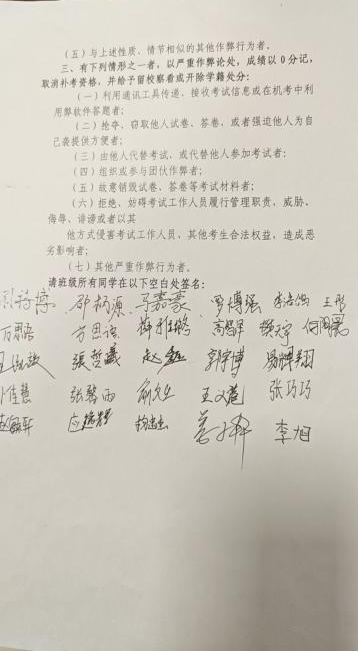 （五）与上述性质、情节相似的其他作弊行为者。
三、有下列情形之一者，以严重作弊论处，成绩以 0 分记，
取消补考资格，并给予留校察看或开除学籍处分：
（一）利用通讯工具传递、接收考试信息或在机考中利
用弊软件答题者；
（二）抢夺、窃取他人试卷、答卷，或者强迫他人为自
己袭提供方便者；
（三）由他人代替考试，或代替他人参加考试者；
（四）组织或参与团伙作弊者；
（五）故意销毁试卷、答卷等考试材料者；
（六）拒绝、妨碍考试工作人员履行管理职责，威胁、
侮辱、诽谤或者以其
他方式侵害考试工作人员、其他考生合法权益，造成恶
劣影响者；
（七）其他严重作弊行为者。
请班级所有同学在以下空白处签名：
马嘉豪 罗博强
方思语
張哲義 赵鑫 郭宇博 易輝翔
佳慧 张馨雨 张巧巧
李旭